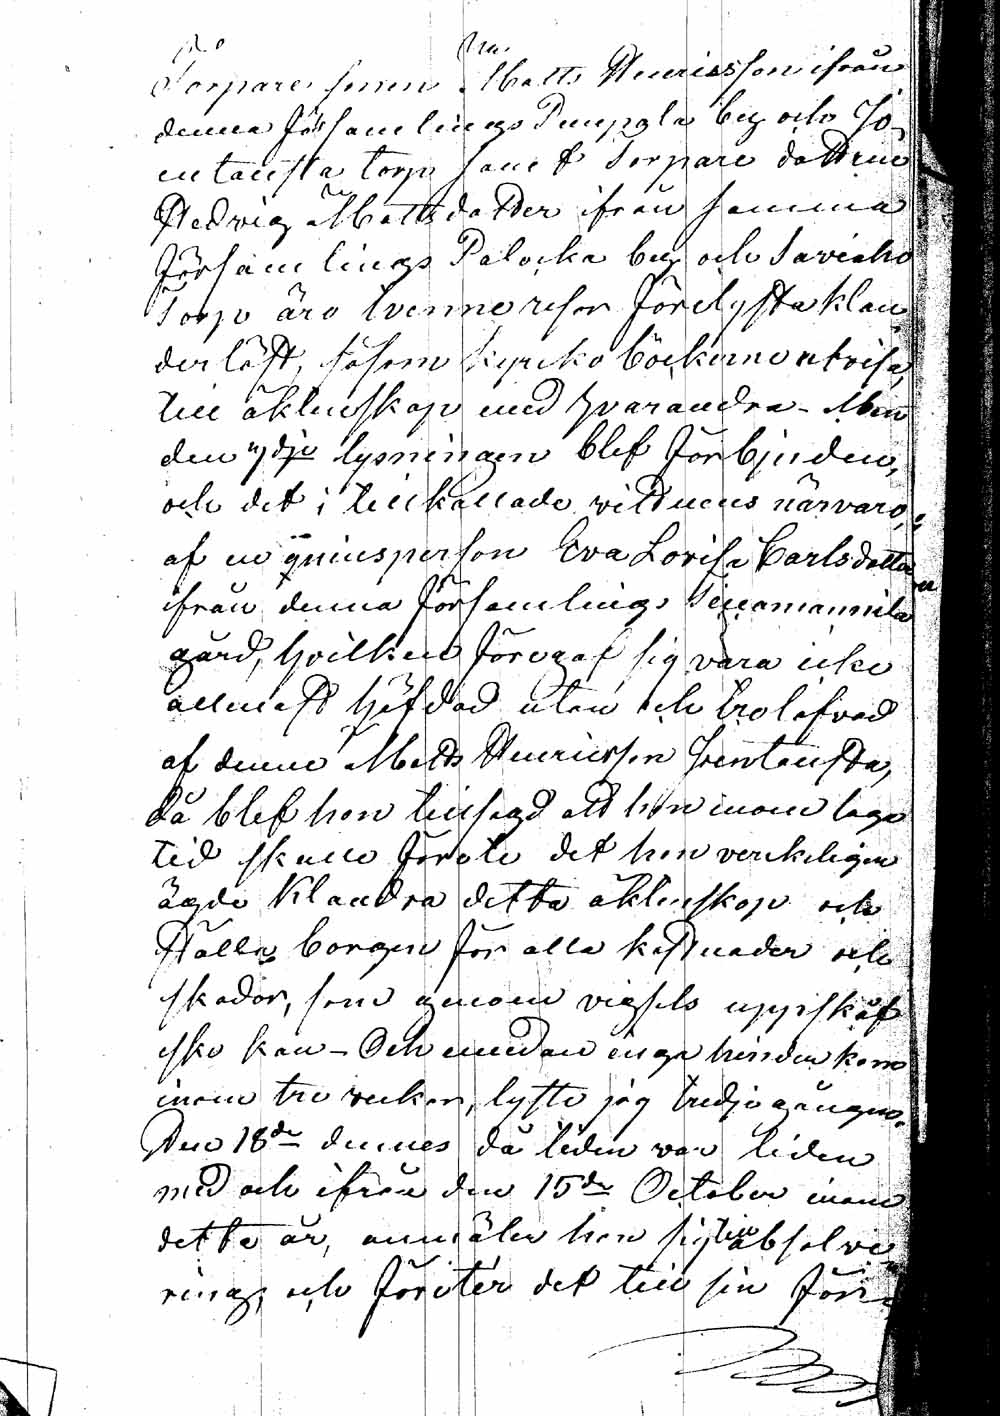 Torpare sonen Matts Henricsson ifrån
denna Församlings Pumpola by och Jo-
entausta torp samt Torpare dottren
Hedvig Mattsdotter ifrån samma
Församlings Palojka by och Saviaho
Torp äro tvenne resor förelysta klan-
derlöst, såsom kyrko böckerne utvisa,
till äktenskap med hvarandra - Men
den 3dje lysningen blef förbjuden,
och det i tillkallade vittnens närvaro,
af en qvinsperson Eva Lovisa Carlsdotter
ifrån denna Församlings
gård, hvilken föregaf sig vara icke
allenast häfdad utan och trolofvad
af denne Matts Henricsson Joentausta,
då blef hon tillsagd att hon inom laga
tid skulle förete det hon verkeligen
ägde klandra detta äktenskap och
ställa borgen för alla kostnader och
skador, som genom vigsels uppskåf
ske kan - Och emedan inga hinder kom
inom tre veckor, lyste jag tredje gången.
Den 18de dennes då tiden var liden
med och ifrån den 15de October inom
detta år, anmäler hon sig till absolve-
ring, och företer det till sin För-